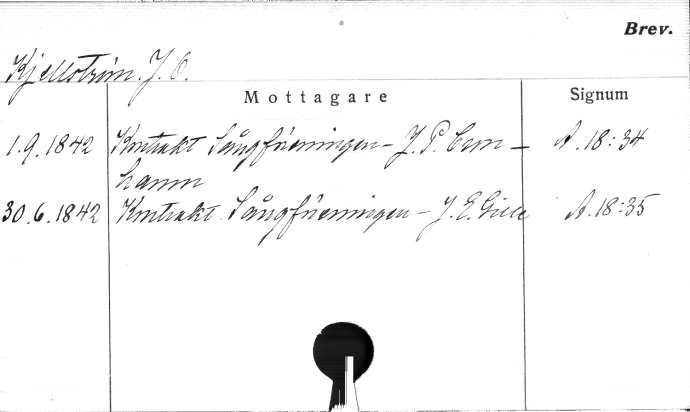 Brev.
Kjellström. J. O.
Mottagare Signum
1.9.1842 Kontrakt Sångföreningen - J. P. Cron- A. 18:34
hamn
30.6.1842 Kontrakt Sångföreningen - J. E. Gille A. 18:35